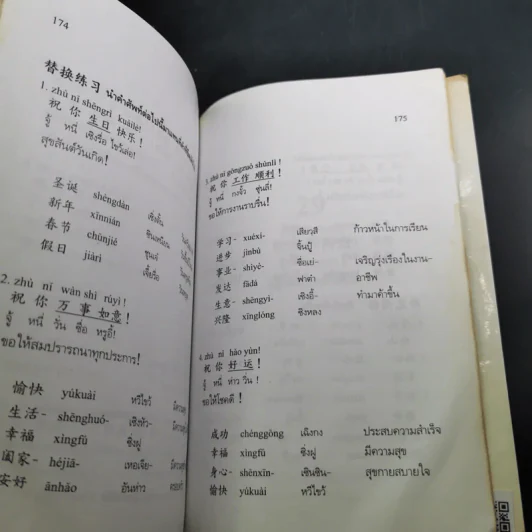 174
替换练习 นำคำศัพท์ต่อไปนี้มาแทนที่
1. zhù nǐ shēngrì kuàilè!
祝 你 生日 快乐!
จู้ หนี่ เซิงรื่อ ไขว้เล่อ!
สุขสันต์วันเกิด!
圣诞 shèngdàn
新年 xīnnián
春节 chūnjié
假日 jiàrì
2. zhù nǐ wàn shì rúyì!
祝 你 万 事 如意!
จู้ หนี่ วั่น ซื่อ หรูอี้!
ขอให้สมปรารถนาทุกประการ!
愉快 yúkuài หวีไขว้
生活- shēnghuó-
幸福 xìngfú ซิ่งฝู
阖家- héjiā-
安好 ānhǎo อันห่าว
175
3. zhù nǐ gōngzuò shùnlì!
祝 你 工作 顺利!
จู้ หนี่ กงจั้ว ซุ่นลี่!
ขอให้การงานราบรื่น!
学习- xuéxí- เสียวสี ก้าวหน้าในการเรียน
进步 jìnbù จิ้นปู้
事业- shìyè- ซื่อเย่- เจริญรุ่งเรืองในงาน-
发达 fādá ฟาต๋า อาชีพ
生意- shēngyi- เซิงอี้- ทำมาค้าขึ้น
兴隆 xīnglóng ซิงหลง
4. zhù nǐ hǎo yùn!
祝 你 好 运!
จู้ หนี่ ห่าว วิ่น!
ขอให้โชคดี!
成功 chénggōng เฉิงกง ประสบความสำเร็จ
幸福 xìngfú ซิ่งฝู มีความสุข
身心- shēnxīn- เซินซิน- สุขกายสบายใจ
愉快 yúkuài หวีไขว้